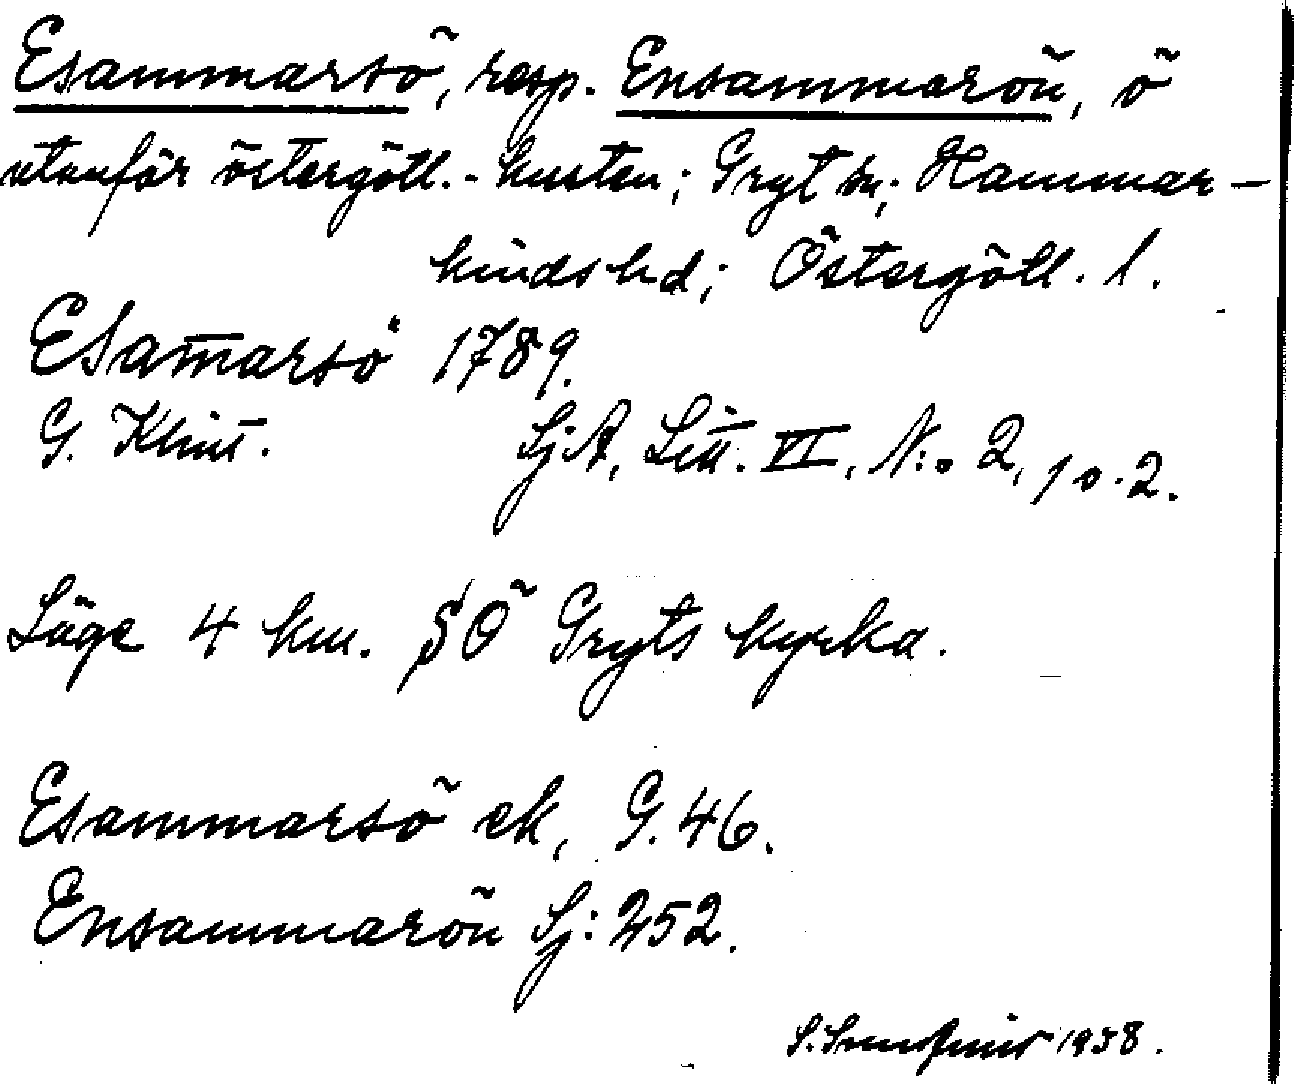 Esammarsö, resp. Ensammarön, ö
utanför östergötl.-kusten; Gryt sn; Hammar-
kinds hd; Östergötl. l.
Esam̅arsö 1789.
G. Klint. SjA, Litt. VI, N:o 2, 10.2.
Läge 4 km. SÖ Gryts kyrka.
Esammarsö ek, G. 46.
Ensammarön Sj: 252.
S. 1938.